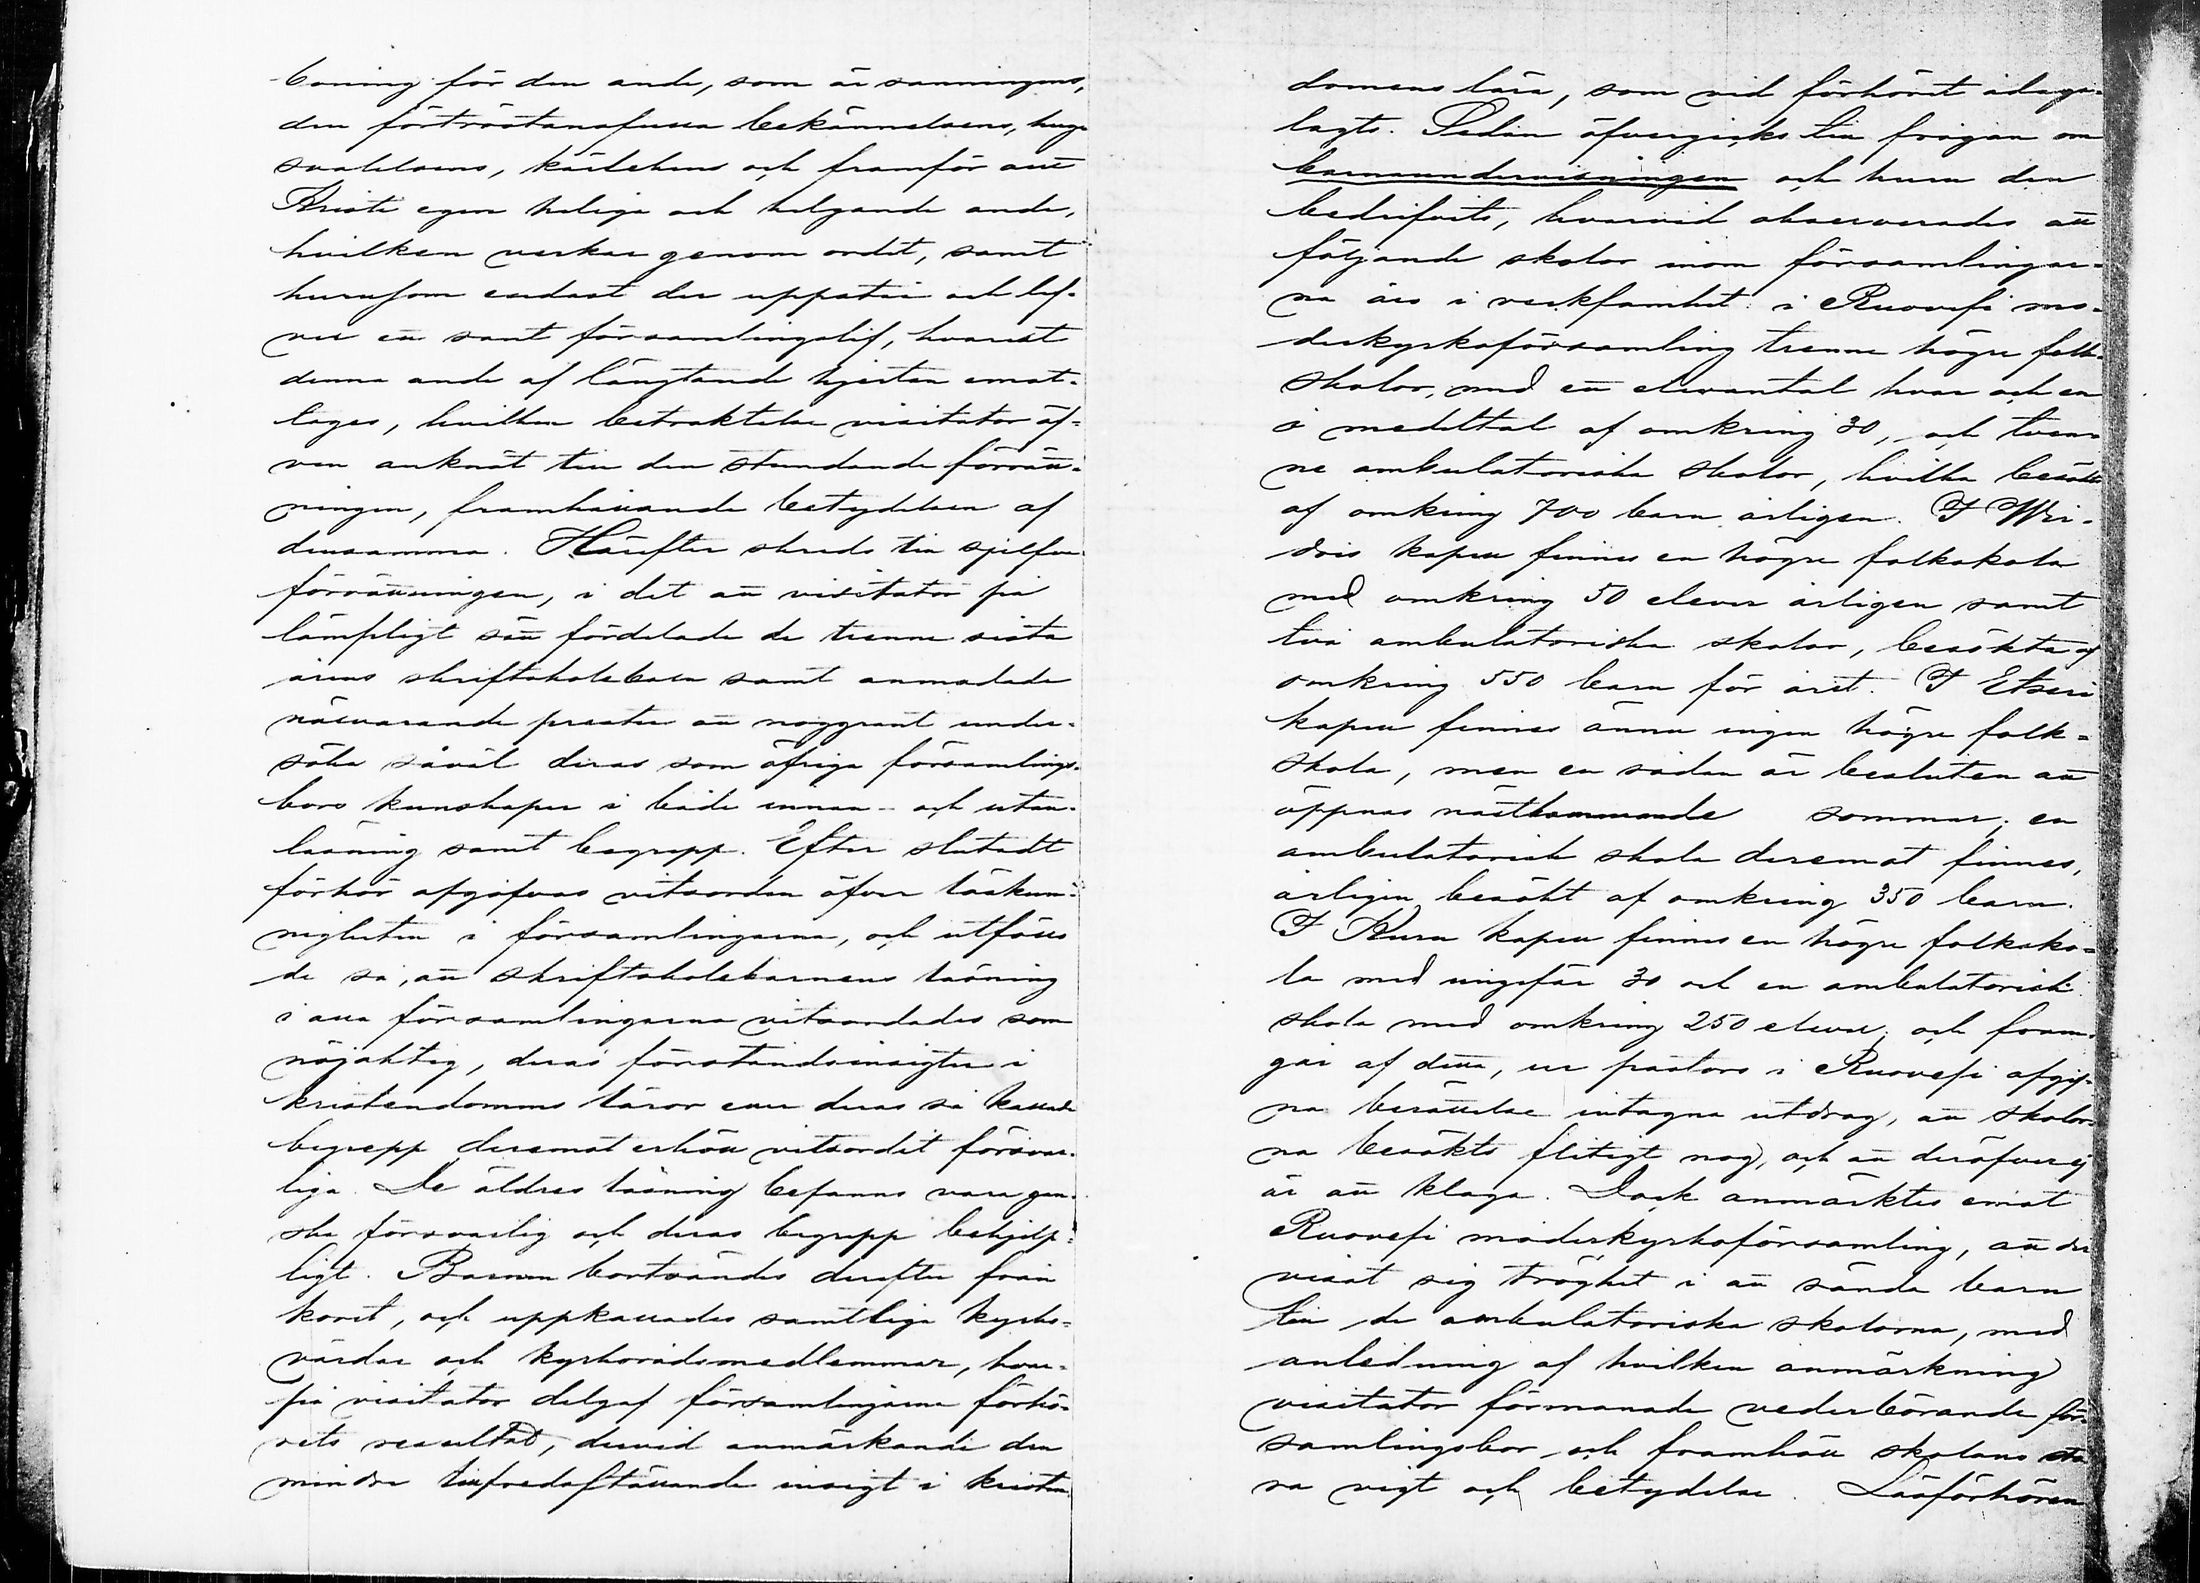 boning för den ande, som är sanningens,
den förtröstansfulla bekännelsens, hug-
svalelsens, kärlekens och framför allt
Kristi egen heliga och helgande ande,
hvilken verkar genom ordet, samt
hurusom endast der uppstår och lef-
ver ett sant församlingslif, hvarest
denna ande af längtande hjertan emot-
tages, hvilken betraktelse visitator äf-
ven anknöt till den stundande förrätt-
ningen, framhållande betydelsen af
densamma. Härefter skreds till sjelfva
förrättningen, i det att visitator på
lämpligt sätt fördelade de trenne sista
årens skriftskolebarn samt anmodade
närvarande prester att noggrant under-
söka såväl deras som öfriga församlings-
bors kunskaper i både innan- och utan-
läsning samt begrepp. Efter slutadt
förhör afgåfvos vitsorden öfver läskun-
nigheten i församlingarna, och utföllo
de så, att skriftskolebarnens läsning
i alla församlingarna vitsordades som
nöjaktig, deras förståndsinsigter i
kristendomens läror eller deras så kallade
begrepp deremot erhöll vitsordet försvar-
liga. De äldres läsning befanns vara gan-
ska försvarlig och deras begrepp behjelp-
ligt. Barnen bortsändes derefter från
koret, och uppkallades samtliga kyrko-
värdar och kyrkorådsmedlemmar, hvar-
på visitator delgaf församlingarna förhö-
rets resultat, dervid anmärkande den
mindre tillfredsställande insigt i kristen-
domens lära, som vid förhöret ådaga-
lagts. Sedan öfvergicks till frågan om
barnaundervisningen och huru den
bedrifvits, hvarvid observerades att
följande skolor inom församlingar-
na äro i verksamhet: i Ruovesi mo-
derkyrkoförsamling trenne högre folk-
skolor, med ett elevantal hvar och en
i medeltal af omkring 30, och tven-
ne ambulatoriska skolor, hvilka besökts
af omkring 700 barn årligen. I Wir-
dois kapell finnes en högre folkskola
med omkring 50 elever årligen samt
två ambulatoriska skolor, besökta af
omkring 550 barn för året. I Etseri
kapell finnes ännu ingen högre folk-
skola, men en sådan är besluten att
öppnas nästkommande sommar; en
ambulatorisk skola deremot finnes,
årligen besökt af omkring 350 barn.
I Kuru kapell finnes en högre folksko-
la med ungefär 30 och en ambulatorisk
skola med omkring 250 elever; och fram-
går af detta, ur pastors i Ruovesi afgif-
na berättelse intagna utdrag, att skolor-
na besökts flitigt nog, och att deröfver ej
är att klaga. Dock anmärktes emot
Ruovesi moderkyrkoförsamling, att der
visat sig tröghet i att sända barn
till de ambulatoriska skolorna, med
anledning af hvilken anmärkning
visitator förmanade vederbörande för-
samlingsbor och framhöll skolans sto-
ra vigt och betydelse. Läsförhören